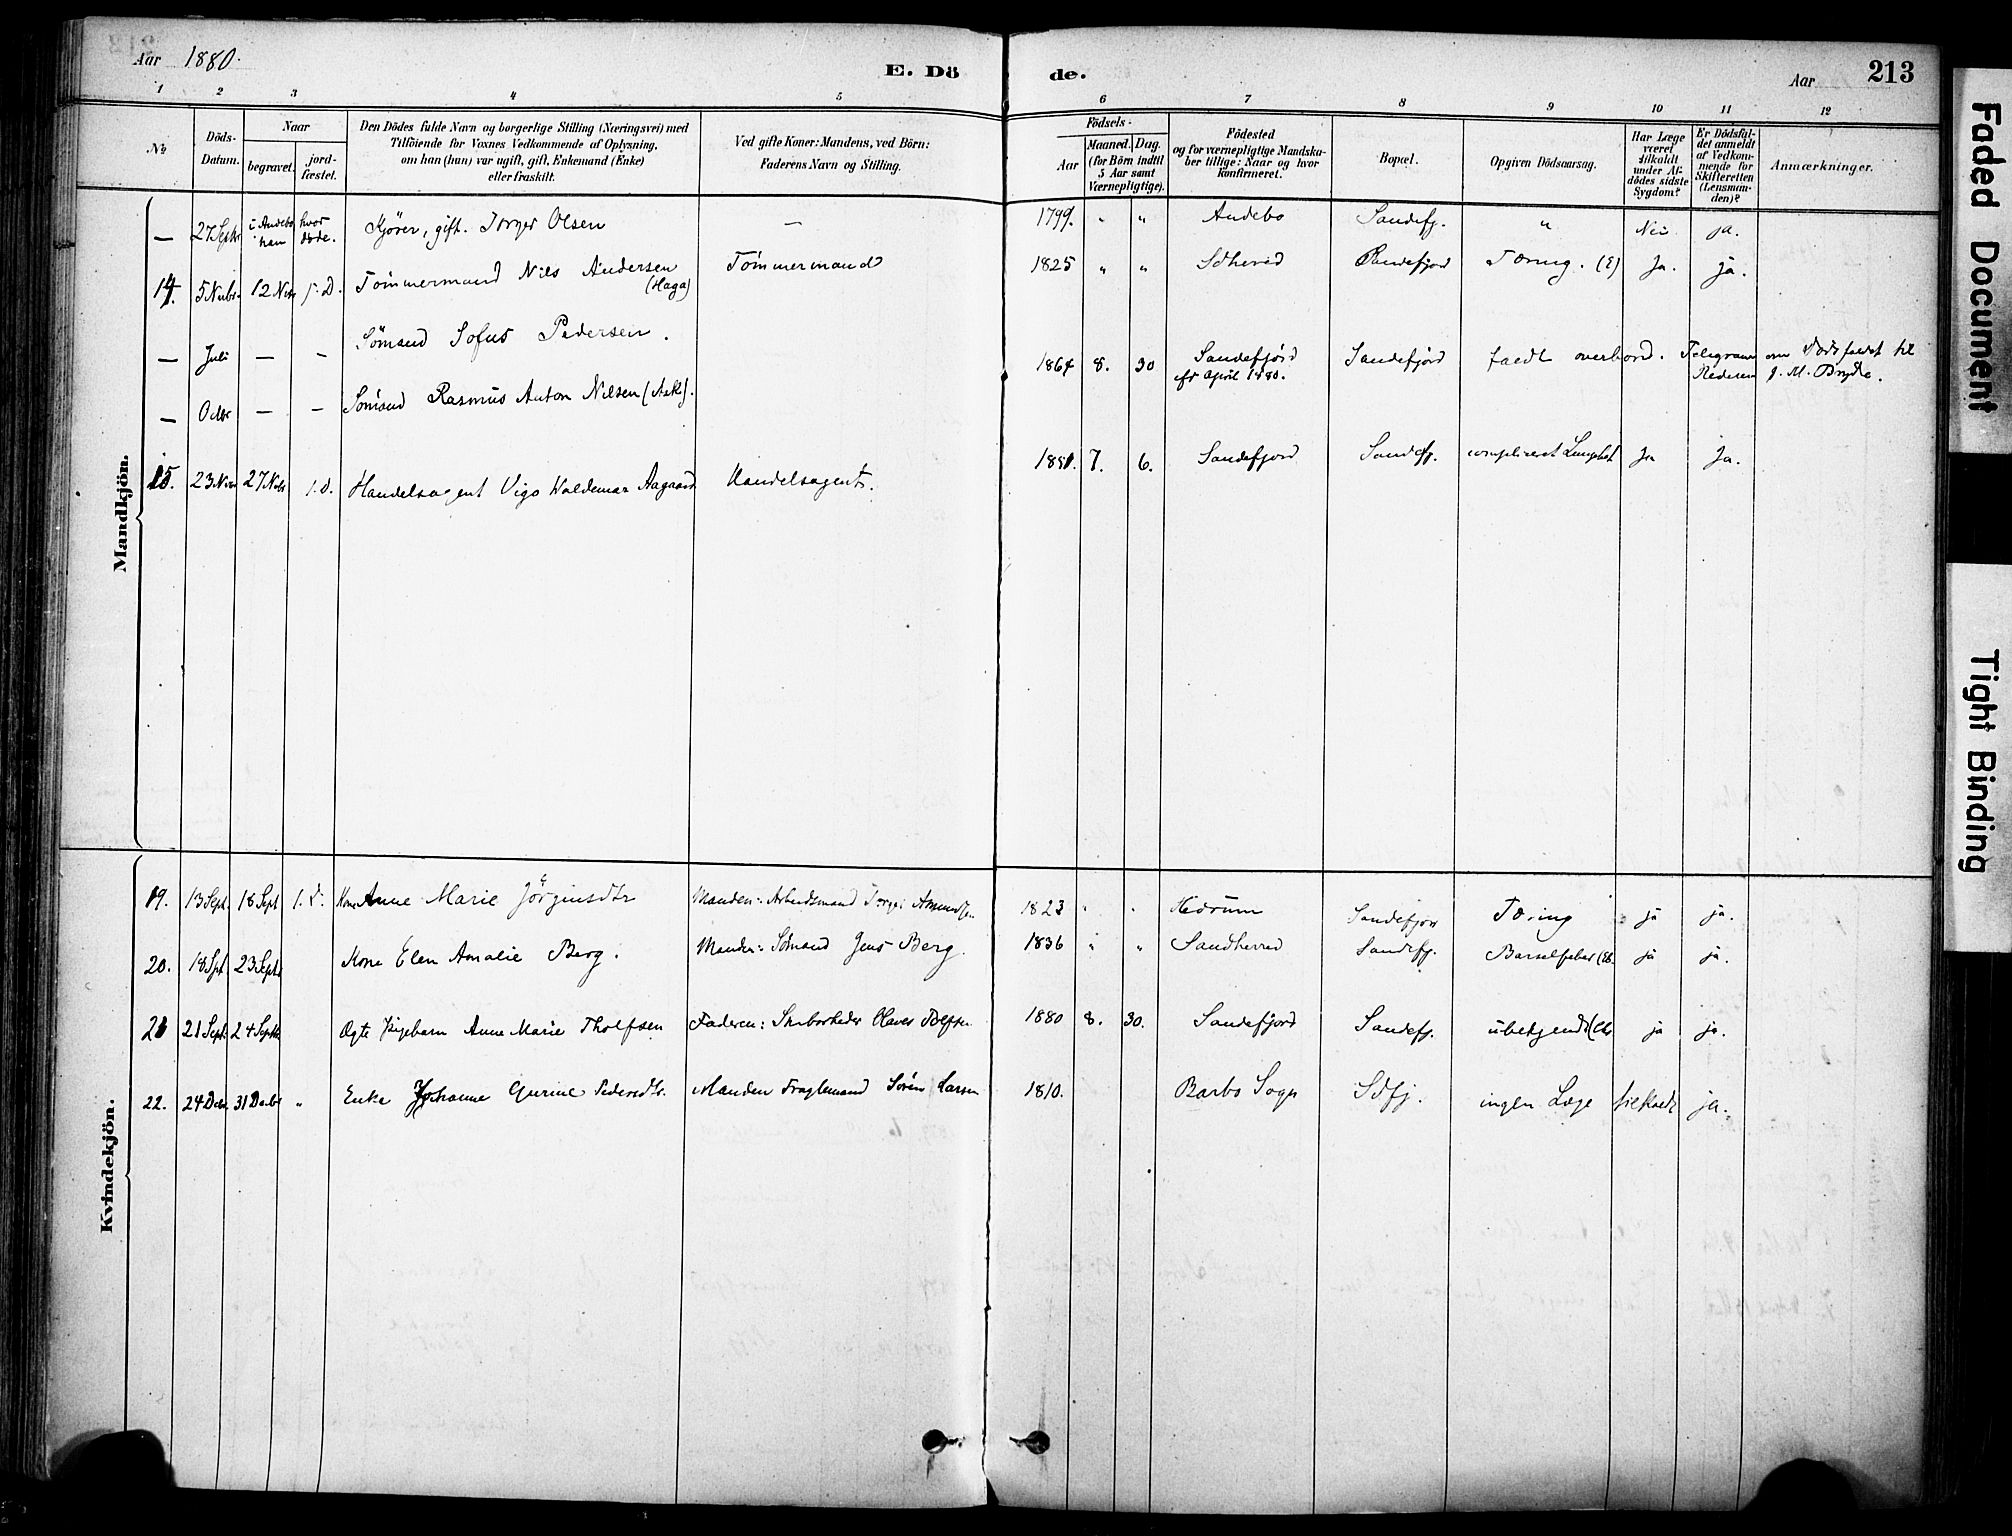 Aar 1880.
E. Dö de.
Aar
213
1 2 3 4 5 6 7 8 9 10 11 12
No
Döds-Datum.
Naar
begravet.
jord-fæstet.
Den Dödes fulde Navn og borgerlige Stilling (Næringsvei) med
Tilföiende for Voxnes Vedkommende af Oplysning,
om han (hun) var ugift, gift, Enkemand (Enke)
eller fraskilt.
Ved gifte Koner: Mandens, ved Börn:
Faderens Navn og Stilling.
Födsels-
Aar
Maaned. Dag.
(for Börn indtil
5 Aar samt
Værnepligtige).
Födested
og for værnepligtige Mandska-
ber tillige: Naar og hvor
konfirmeret.
Bopæl.
Opgiven Dödsaarsag.
Har Læge
været
tilkaldt
under Af-
dödes sidste
Sygdom?
Er Dödsfal-
det anmeldt
af Vedkom-
mende for
Skifteretten
(Lensman-
den)?
Anmærkninger.
Mandkjön.
— 27 Septbr i Andebo hvor han döde. Kjörer, gift. Jörger Olsen — 1799. " " Andebo Sandefj. " Nei ja.
14. 5 Nvbr 12 Nvbr s. D. Tömmermand Nils Andersen (Haga) Tömmermand 1825 " " Sdherred Sandefjord Tæring. (E) Ja. ja.
— Juli — — Sömand Sofus Pedersen. 1864 8. 30 Sandefjord Sandefjord faldt overbord. Telegram om Dödsfaldet til
cfr April 1880. Rederen J. M. Bryde.
— Octbr — — Sömand Rasmus Anton Nilsen (Aske).
15. 23 Nvbr 27 Nvbr s. d. Handelsagent Vigo Waldemar Aagaard Handelsagent. 1851. 7. 6. Sandefjord Sandefj. compliceret Ja Ja.
Kvindekjön.
19. 13 Sept. 18 Sept s. d. Kone Anne Marie Jörginsdtr Manden: Arbeidsmand Jörger Amundsen 1823 " " Hedrum Sandefjord Tæring ja ja.
20. 18 Spt 23 Septr Kone Elen Amalie Berg. Manden: Sömand Jens Berg. 1836 " " Sandherred Sandefj. Barselfeber ja ja.
21 21 Sept. 24 Septbr Ægte Pigebarn Anne Marie Tholfsen Faderen: Skibsreder Olaves Tolfsen 1880 8. 30. Sandefjord Sandefj. ubekjendt ja ja.
22. 24 Decbr 31 Decbr " Enke Johanne Gurine Pedersdtr. Manden Fragtemand Sören Larsen 1810. Barbo Sogn Sdfj. ingen Læge tilkaldt ja.
Faded Document
Tight Binding